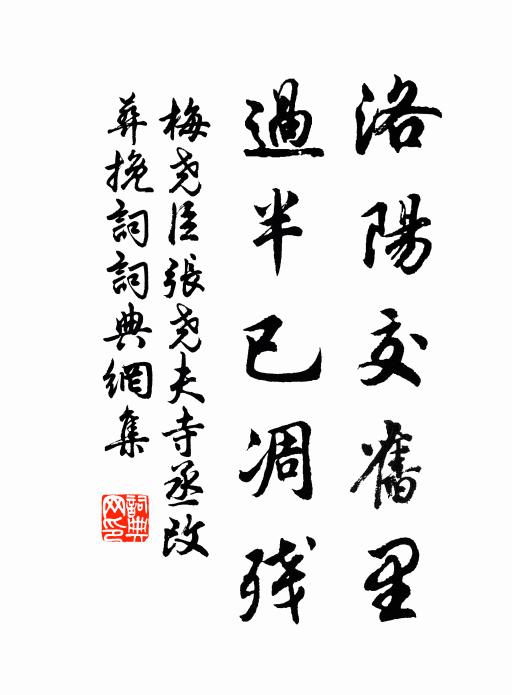 洛陽交舊里
過半已凋残
梅尧臣張尧夫寺丞改
葬挽詞詞典網集
詞典网印